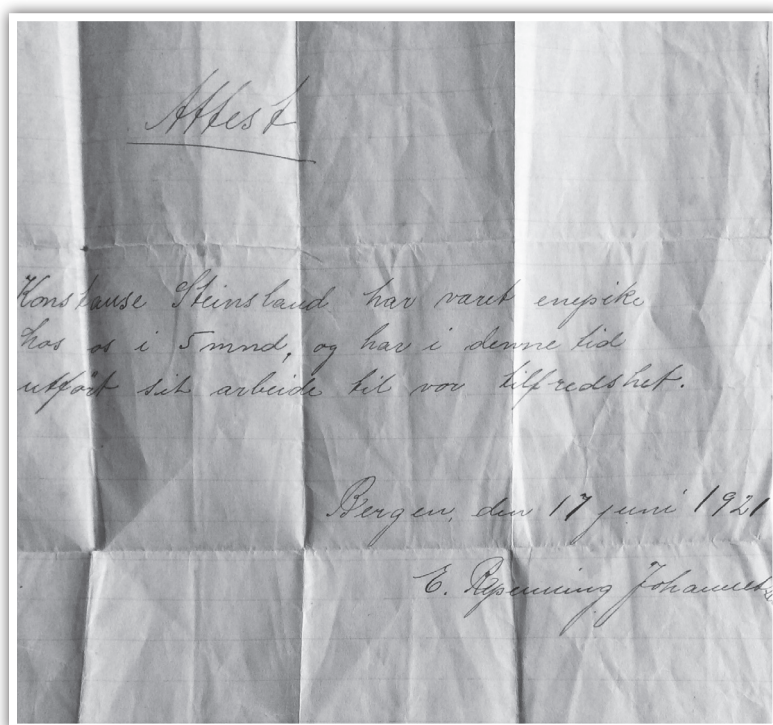 Attest
Konstanse Steinsland har været enepike
hos os i 5 mnd, og har i denne tid
utført sit arbeide til vor tilfredshet.
Bergen, den 17 juni 1921
E. Repenning